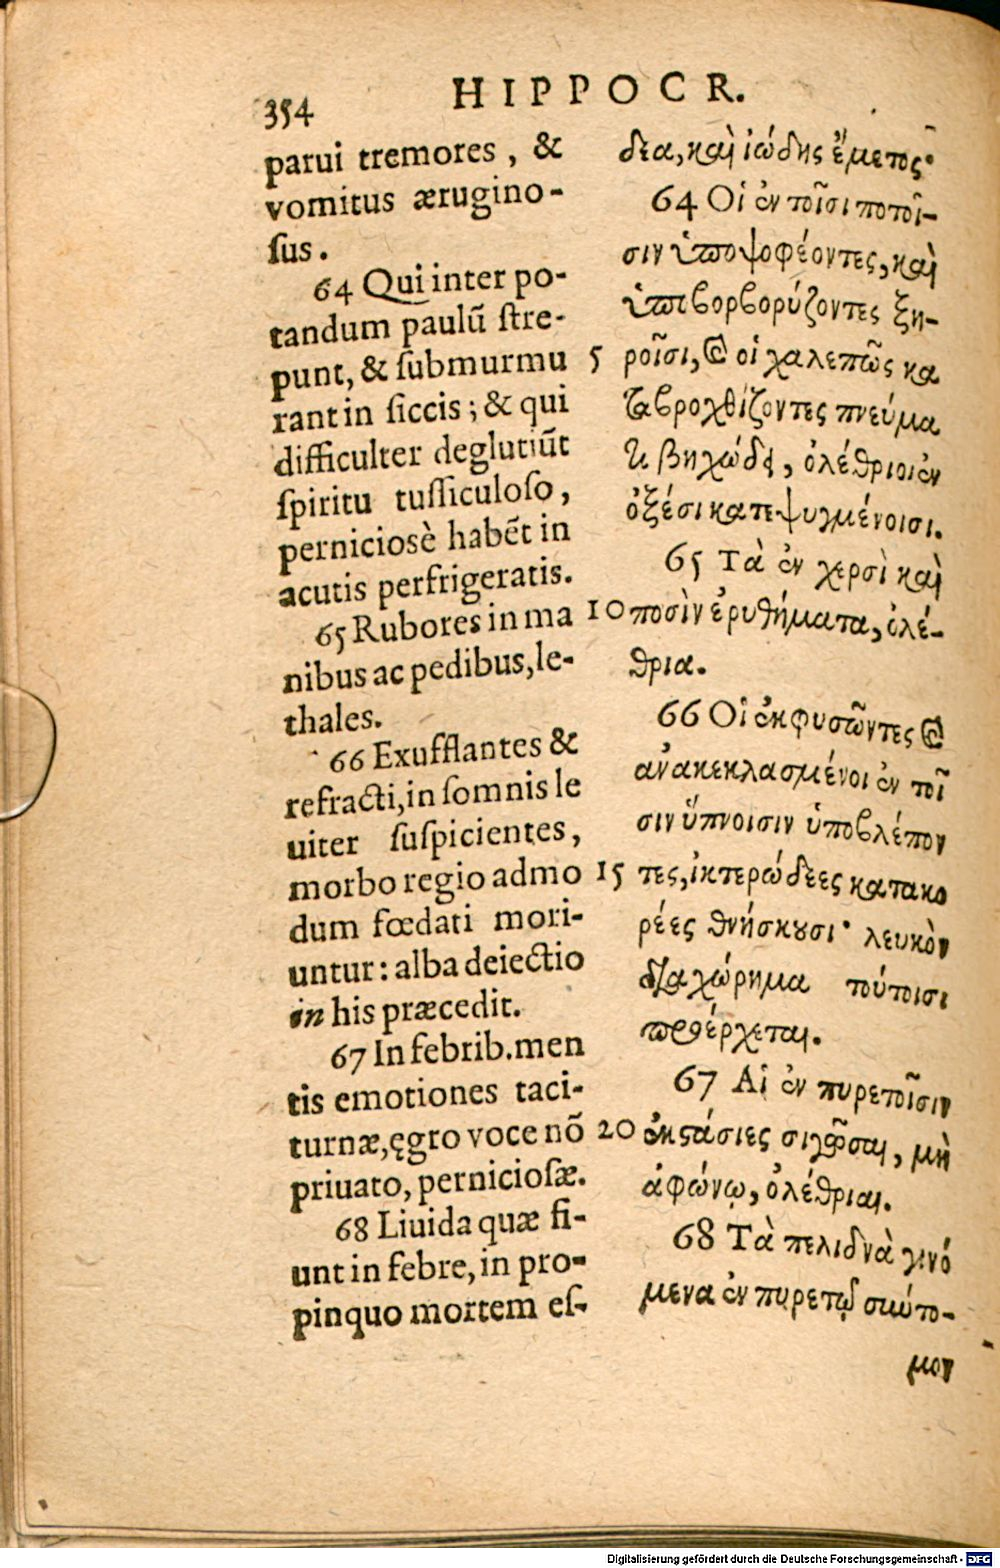 354
HIPPOCR.
parui tremores, &
vomitus ærugino-
ſus.
64 Qui inter po-
tandum paulū ſtre-
punt, & ſubmurmu
rant in ſiccis; & qui
difficulter deglutiūt
ſpiritu tuſſiculoſo,
pernicioſè habēt in
acutis perfrigeratis.
65 Rubores in ma
nibus ac pedibus, le-
thales.
66 Exufflantes &
refracti, in ſomnis le
uiter ſuſpicientes,
morbo regio admo
dum fœdati mori-
untur: alba deiectio
in his præcedit.
67 In febrib. men
tis emotiones taci-
turnæ, ęgro voce nō
priuato, pernicioſæ.
68 Liuida quæ fi-
unt in febre, in pro-
pinquo mortem eſ-
δεα, καὶ ἰώδης ἔμετος·
64 Οἱ ἐν τοῖσι ποτοῖ-
σιν ὑποψοφέοντες, καὶ
ὑποβορβορύζοντες ξη-
5 ροῖσι, καὶ οἱ χαλεπῶς κα
ταβροχθίζοντες πνεύμα
τι βηχώδει, ὀλέθριοι ἐν
ὀξέσι κατεψυγμένοισι.
65 Τὰ ἐν χερσὶ καὶ
10 ποσὶν ἐρυθήματα, ὀλέ-
θρια.
66 Οἱ ἐκφυσῶντες καὶ
ἀνακεκλασμένοι ἐν τοῖ
σιν ὕπνοισιν ὑποβλέπον
15 τες, ἰκτερώδεες κατακο
ρέες θνήσκουσι· λευκὸν
διαχώρημα τούτοισι
προέρχεται.
67 Αἱ ἐν πυρετοῖσιν
20 ἐκστάσιες σιγῶσαι, μὴ
ἀφώνῳ, ὀλέθριαι.
68 Τὰ πελιδνὰ γινό
μενα ἐν πυρετῷ σιώτο-
μον
Digitalisierung gefördert durch die Deutsche Forschungsgemeinschaft - DFG